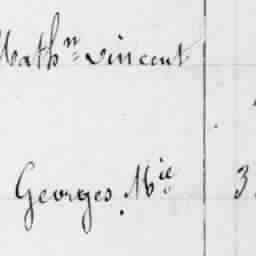 Math.n Vincent
Georges Mie 3